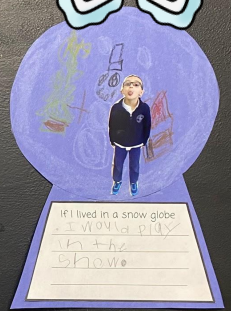 If I lived in a snow globe
. I would play
in the
snow.